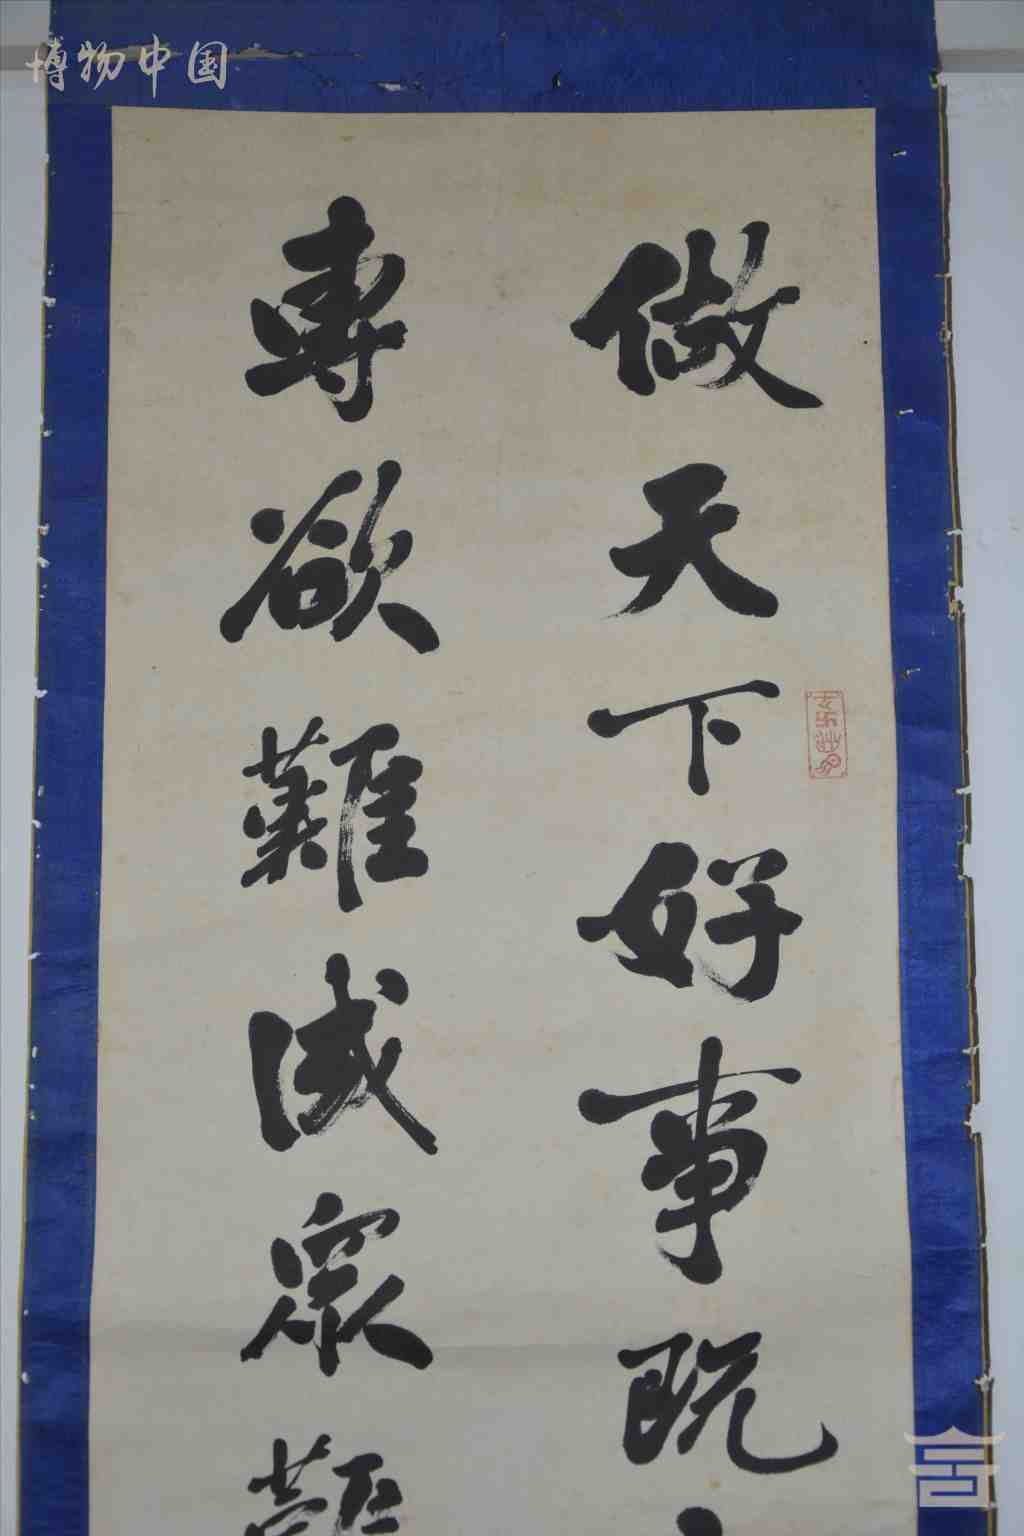 博物中国
做天下好事既
專欲難成衆難